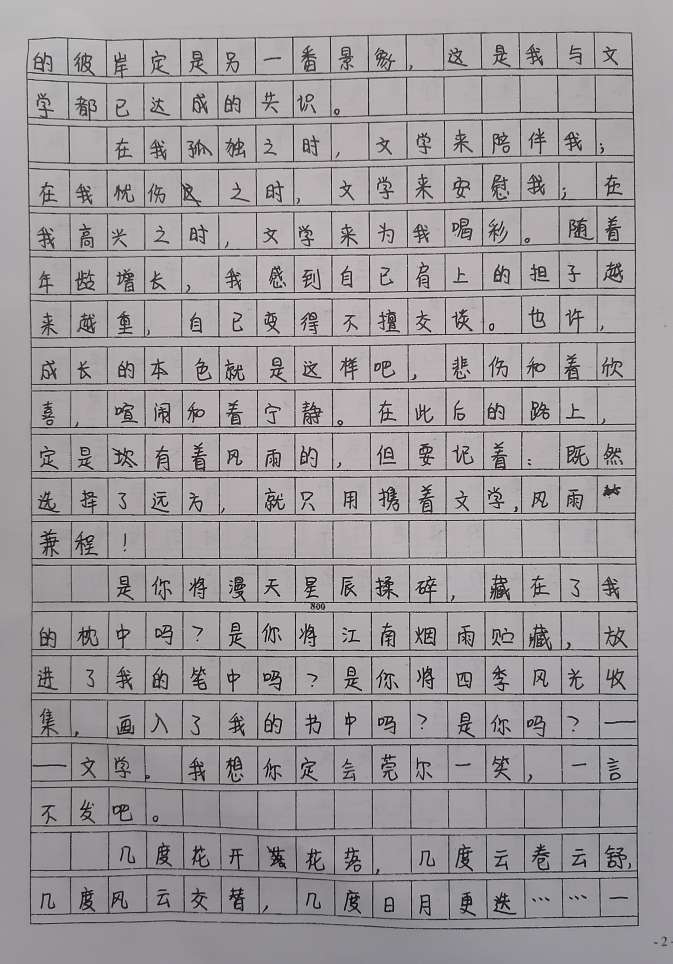 的彼岸定是另一番景象，这是我与文
学都已达成的共识。
在我孤独之时，文学来陪伴我；
在我忧伤之时，文学来安慰我；在
我高兴之时，文学来为我喝彩。随着
年龄增长，我感到自己肩上的担子越
来越重，自己变得不擅交谈。也许，
成长的本色就是这样吧，悲伤和着欣
喜，喧闹和着宁静。在此后的路上，
定是有着风雨的，但要记着：既然
选择了远方，就只用携着文学，风雨
兼程！
是你将漫天星辰揉碎，藏在了我
800
的枕中吗？是你将江南烟雨贮藏，放
进了我的笔中吗？是你将四季风光收
集，画入了我的书中吗？是你吗？—
—文学。我想你定会莞尔一笑，一言
不发吧。
几度花开花落，几度云卷云舒，
几度风云交替，几度日月更迭……一
-2-